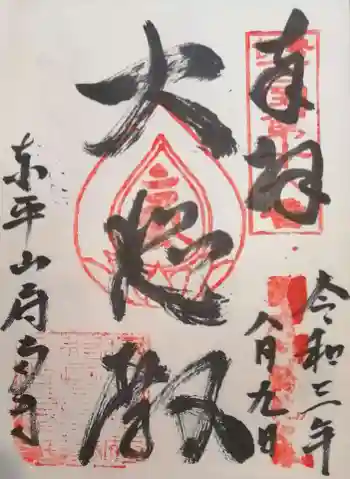 奉拝
令和三年
八月九日
大悲殿
東平山府南寺